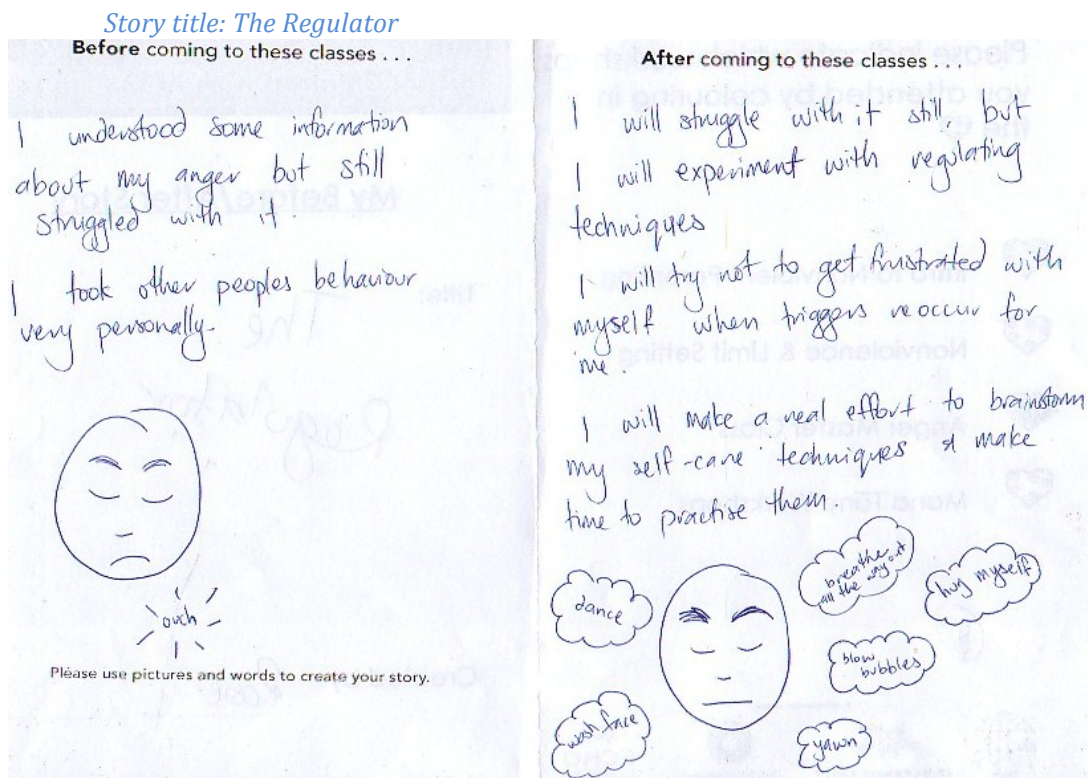 Story title: The Regulator
Before coming to these classes . . .
I understood some information
about my anger but still
struggled with it
I took other peoples behaviour
very personally.
ouch
Please use pictures and words to create your story.
After coming to these classes . . .
I will struggle with it still, but
I will experiment with regulating
techniques
I will try not to get frustrated with
myself when triggers reoccur for
me.
I will make a real effort to brainstorm
my self-care techniques & make
time to practise them.
breathe
all the way out
hug myself
dance
blow
bubbles
wash face
yawn